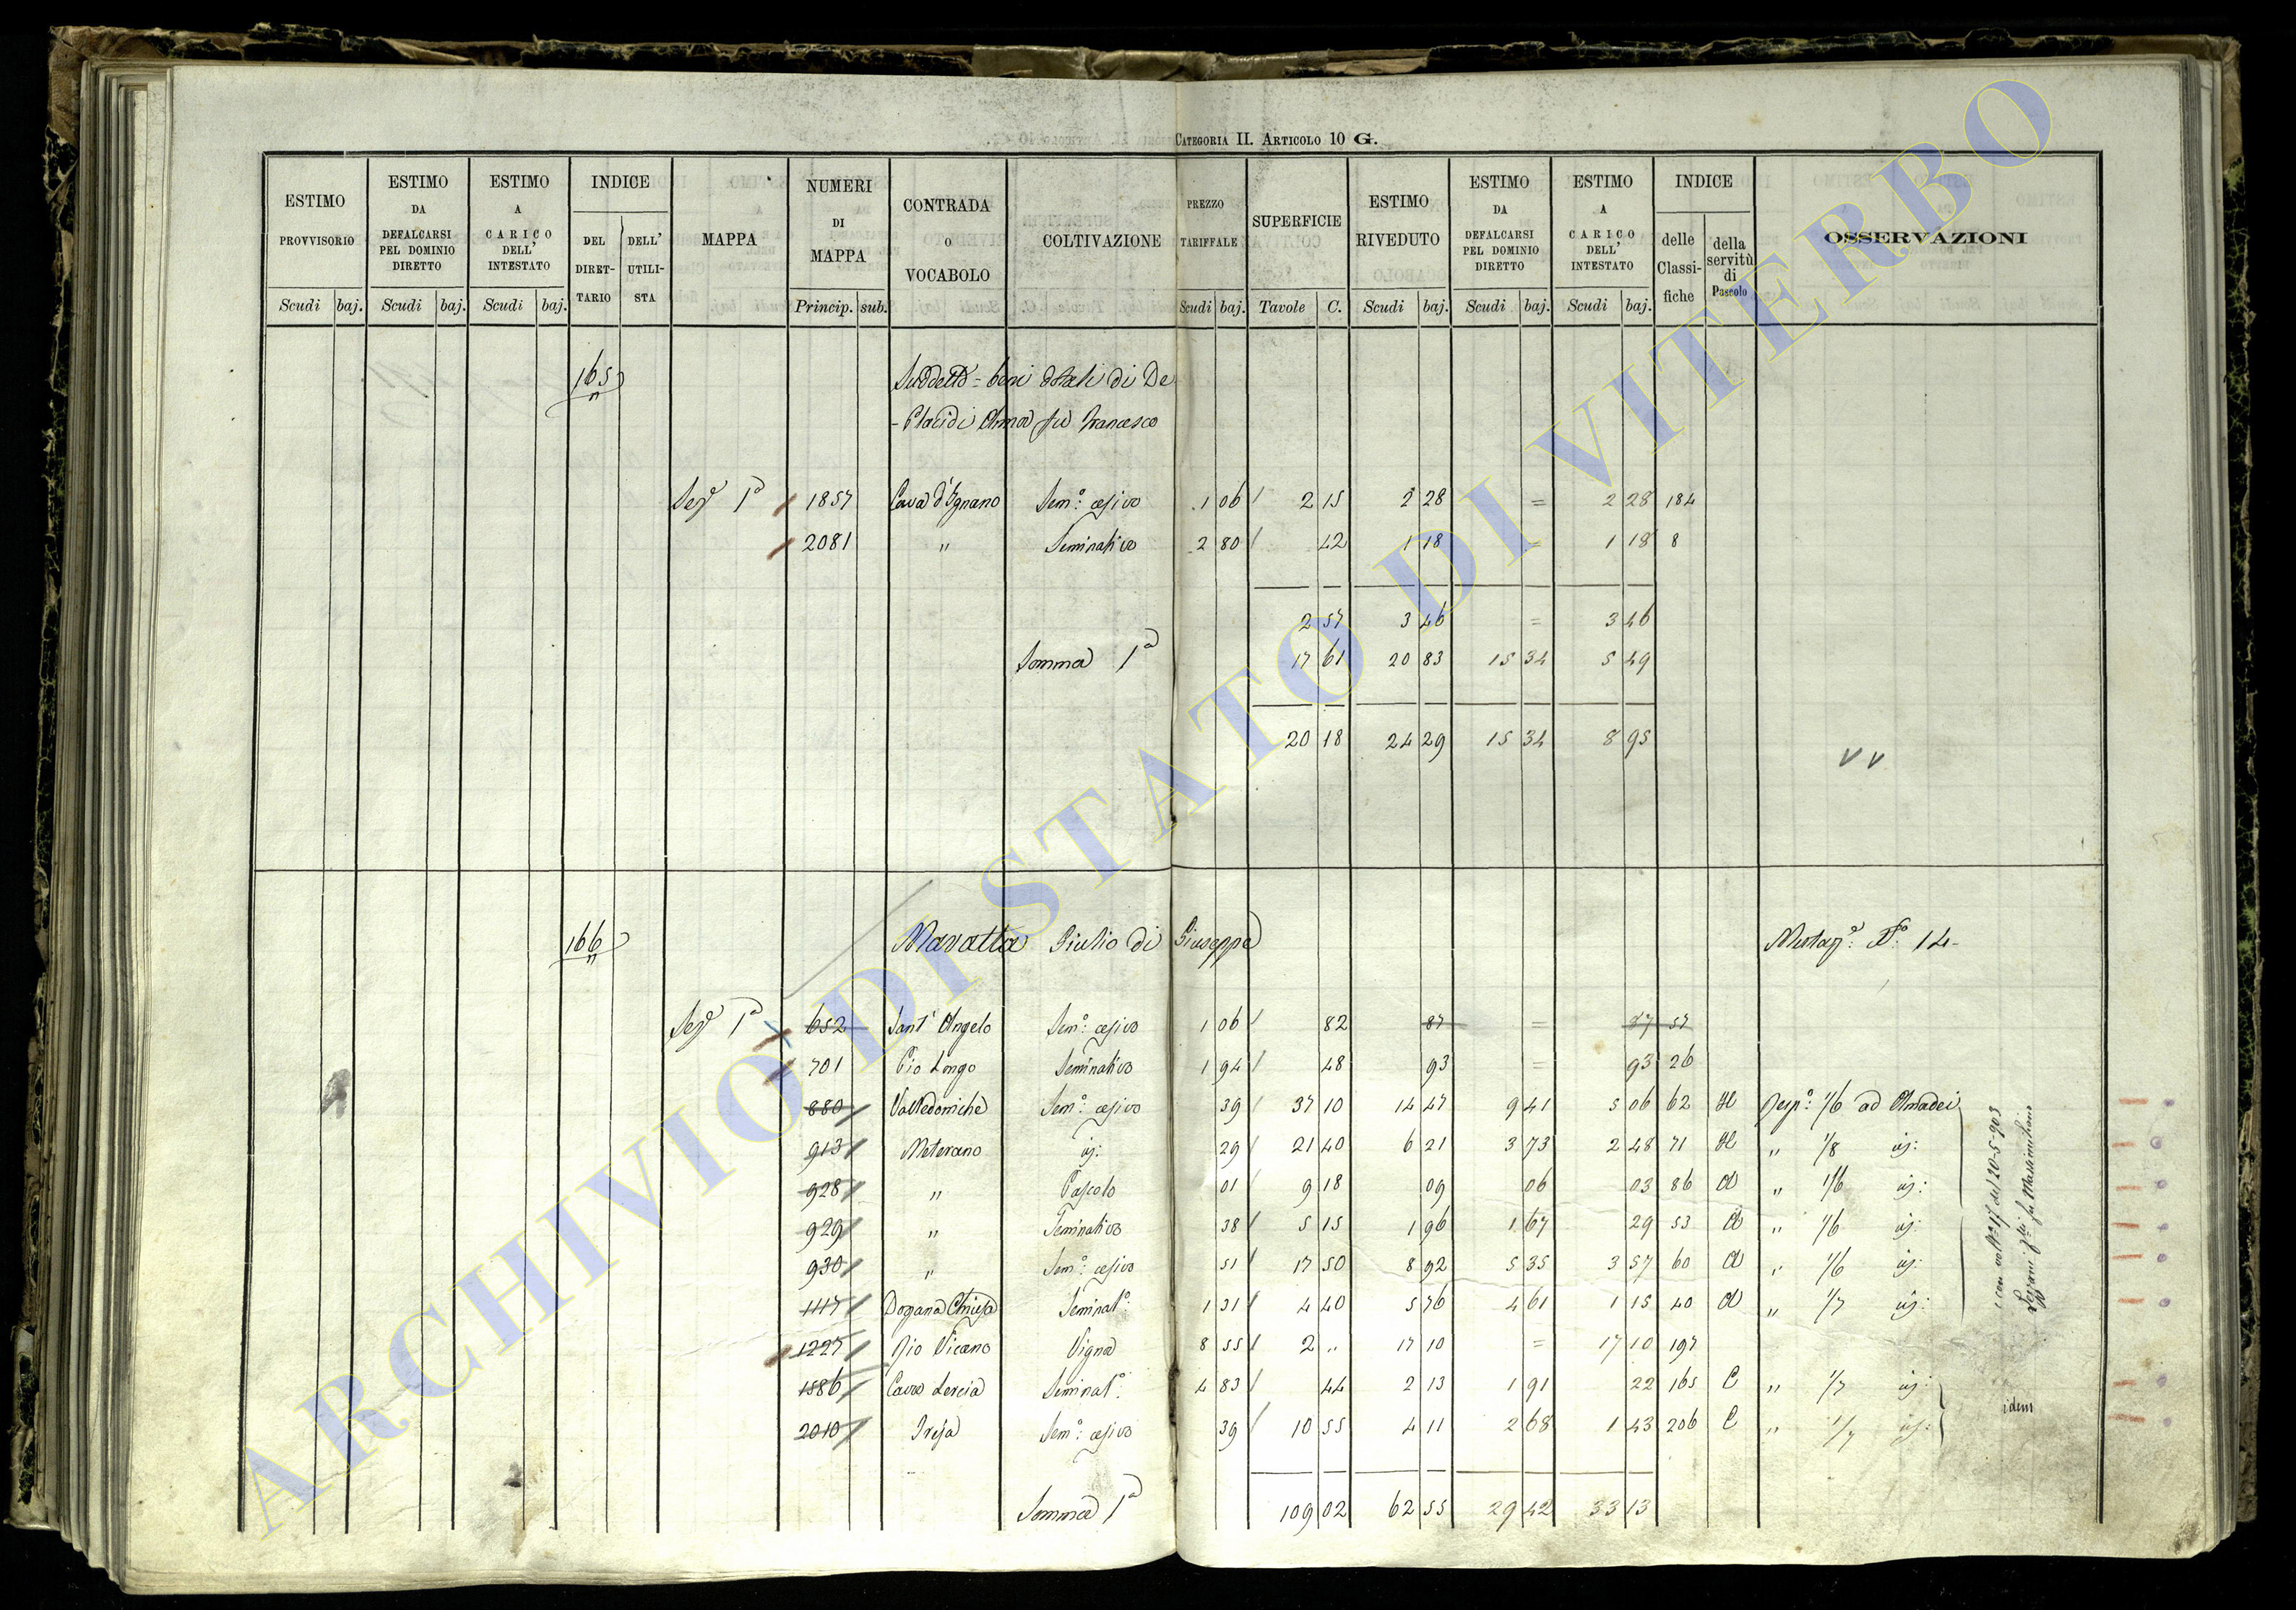 CATEGORIA II. ARTICOLO 10 G.
ESTIMO PROVVISORIO Scudi baj. ESTIMO DA DEFALCARSI PEL DOMINIO DIRETTO Scudi baj. ESTIMO A CARICO DELL' INTESTATO Scudi baj. INDICE DEL DIRET-TARIO DELL' UTILI-STA MAPPA NUMERI DI MAPPA Princip. sub. CONTRADA O VOCABOLO COLTIVAZIONE PREZZO TARIFFALE Scudi baj. SUPERFICIE Tavole C. ESTIMO RIVEDUTO Scudi baj. ESTIMO DA DEFALCARSI PEL DOMINIO DIRETTO Scudi baj. ESTIMO A CARICO DELL' INTESTATO Scudi baj. INDICE delle Classi-fiche della servitù di Pascolo OSSERVAZIONI
165 Suddetto = beni dotali di De
- Placidi Anna fu Francesco
Sez.e 1a 1857 Cava d'Ignano Sem.o 1 06 2 15 2 28 = 2 28 184
2081 " Seminativo 2 80 42 1 18 = 1 18 8
2 57 3 46 = 3 46
Somma 1a 17 61 20 83 15 34 5 49
20 18 24 29 15 34 8 95
V V
166 Mavatta Giulio di Giuseppe 14
Sez.e 1a 652 Sant' Angelo Sem.o 1 06 82 87 = 87 57
701 Pio Longo Seminativo 1 94 48 93 = 93 26
880 Valledoniche Sem.o 39 37 10 14 47 9 41 5 06 62 1/6 ad Amadei
913 Meterano id: 29 21 40 6 21 3 73 2 48 71 " 1/8 id:
928 " Pascolo 01 9 18 09 06 03 86 " 1/6 id:
929 " Seminativo 38 5 15 1 96 1 67 29 53 " 1/6 id:
930 " Sem.o 51 17 50 8 92 5 35 3 57 60 " 1/6 id:
1117 Dogana Chiusa Seminat.o 1 31 4 40 5 76 4 61 1 15 40 " 1/7 id:
1227 Rio Vicano Vigna 8 55 2 " 17 10 = 17 10 197
1586 Cava Lercia Seminat.o 4 83 44 2 13 1 91 22 165 C " 1/7 id:
2010 Sem.o 39 10 55 4 11 2 68 1 43 206 C " 1/7 id:
idem
Somma 1a 109 02 62 55 29 42 33 13
ARCHIVIO DI STATO DI VITERBO